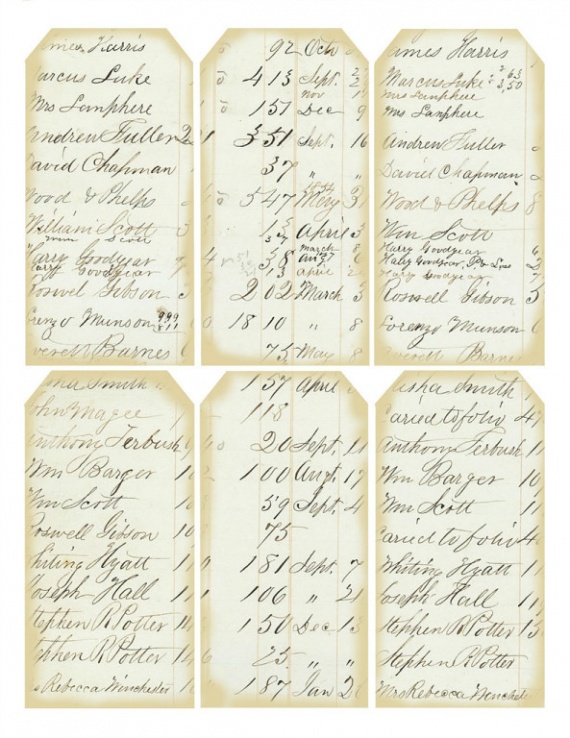 James Harris
Marcus Luke
Mrs Lanphere
Andrew Fuller 2
David Chapman
Wood & Phelps
William Scott
Harry Goodyear
Harry Goodyear
Roswel Gibson
Lorenzo Munson 999
811
Everett Barnes
92 Octo
413 Sept.
Nov
151 Dec 9
351 Sept. 16
37 " "
547 May 3
13 April 3
March 8
38
13 april
202 March 3
1810 " 8
75 May 8
James Harris
Marcus Luke
3,50
Mrs Lanphere
Mrs Lanphere
Andrew Fuller
David Chapman
Wood & Phelps 8
Wm Scott
Harry Goodyear
Harry Goodyear
Harry Goodyear
Roswell Gibson 3
Lorenzo Munson
Everett Barnes
Smith
John Magee
Anthony Terbush
Wm Barger
Wm Scott
Roswell Gibson
Whiting Hyatt
Joseph Hall
Stephen R Potter
Stephen R Potter
Rebecca Winchester
157 April
118
20 Sept. 11
100 Augt. 17
59 Sept. 4
75
181 Sept. 7
106 " 21
150 Dec 13
25 " "
187 Jan 2
Elisha Smith
caried to folio 4
Anthony Terbush
Wm Barger 10
Wm Scott 11
caried to folio 4
Whiting Hyatt 1
Joseph Hall 11
Stephen R Potter 15
Stephen R Potter
Mrs Rebecca Winchel